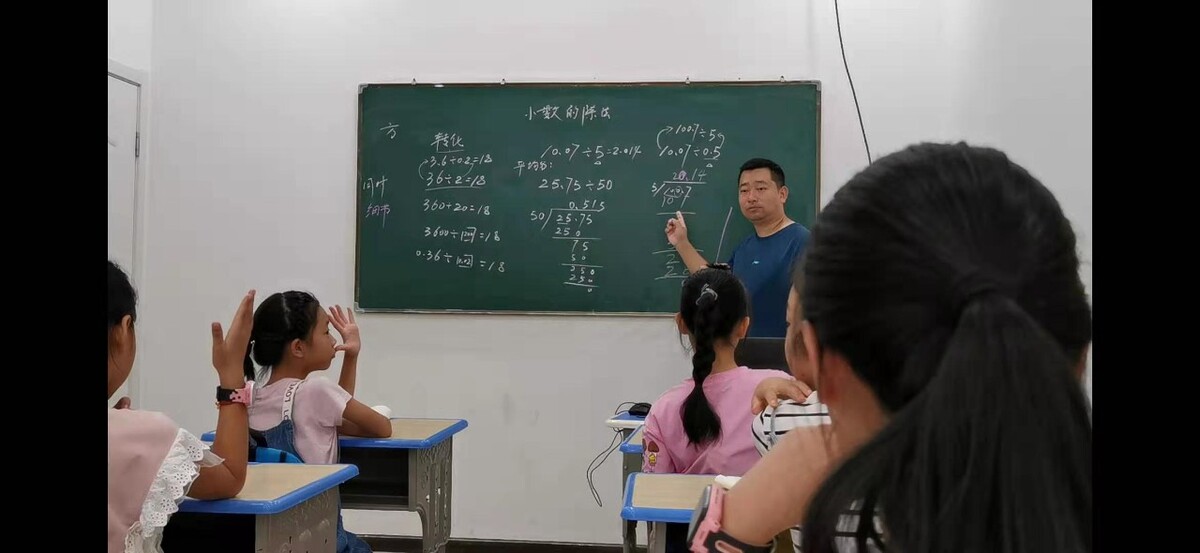 小数的除法
方
转化
3.6÷0.2=18
36÷2=18
360÷20=18
3600÷200=18
0.36÷0.02=18
同叶
细节
10.07÷5=2.014
平均数:
25.75÷50
0.515
50
25.75
250
75
50
250
250
0
100.7÷5
10.07÷0.5
20.14
5